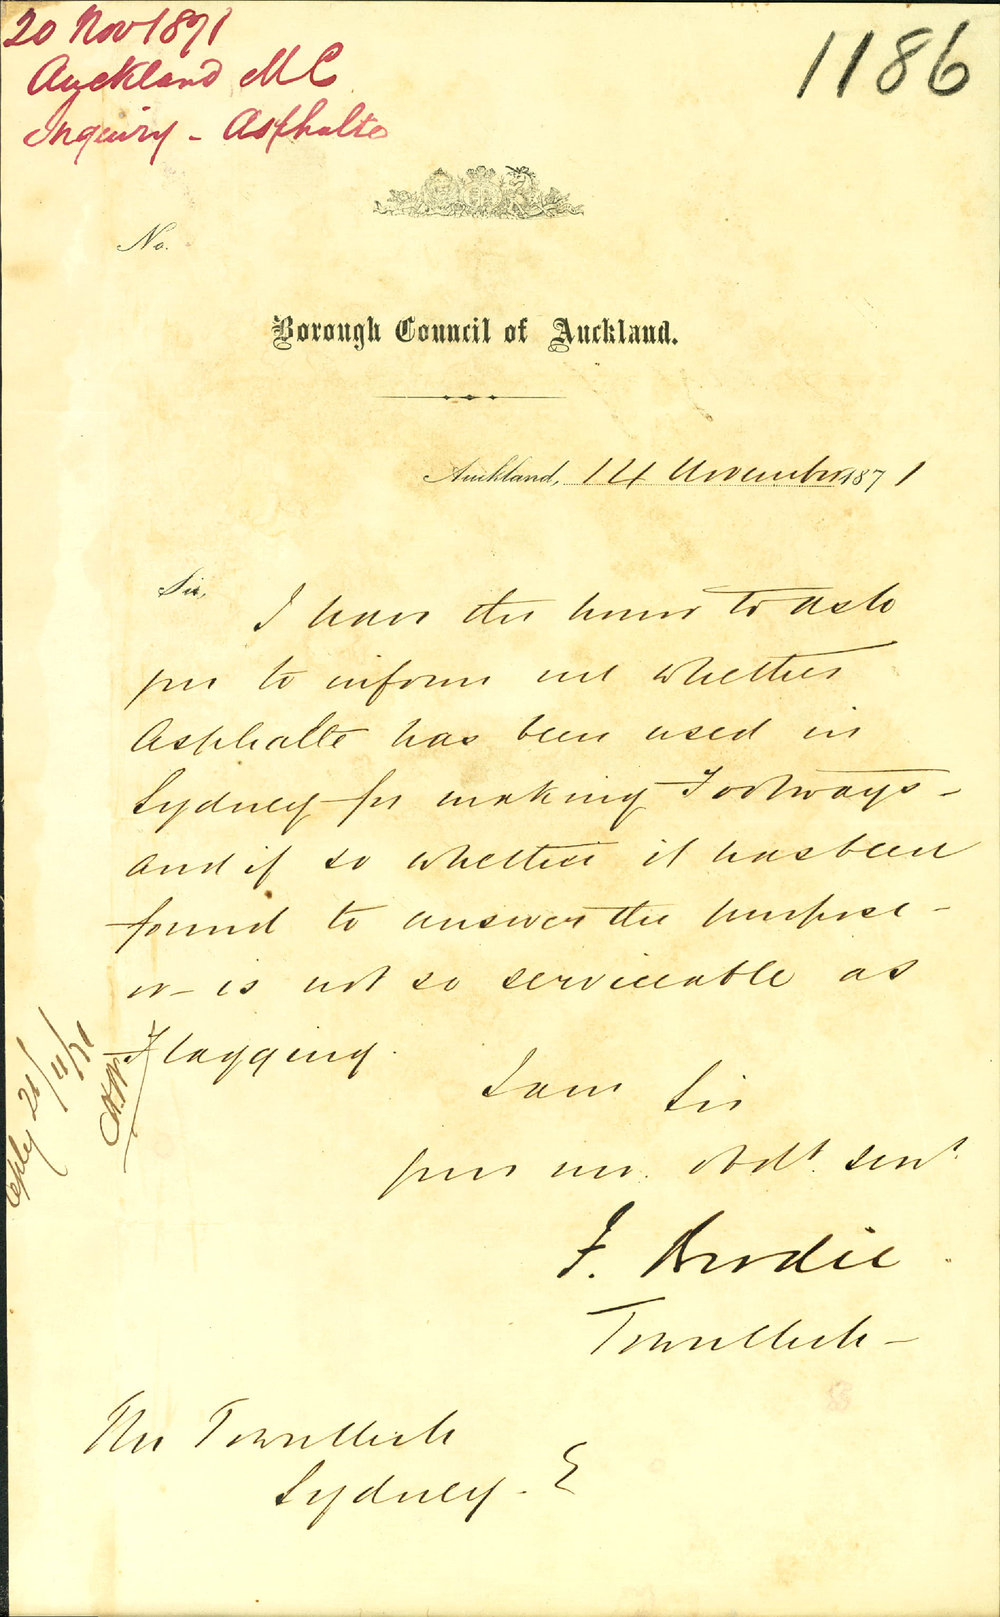 20 Nov 1871
Auckland M C
Inquiry - Asphalte
1186
No.
Borough Council of Auckland.
Auckland, 14 November 1871
Sir,
I have the honor to ask
you to inform me whether
Asphalte has been used in
Sydney for making Footways -
and if so whether it has been
found to answer the purpose -
or - is not so serviceable as
Flagging.
I am Sir
your mo. obdt. servt.
F. Brodie
Town Clerk -
The Town Clerk
Sydney.